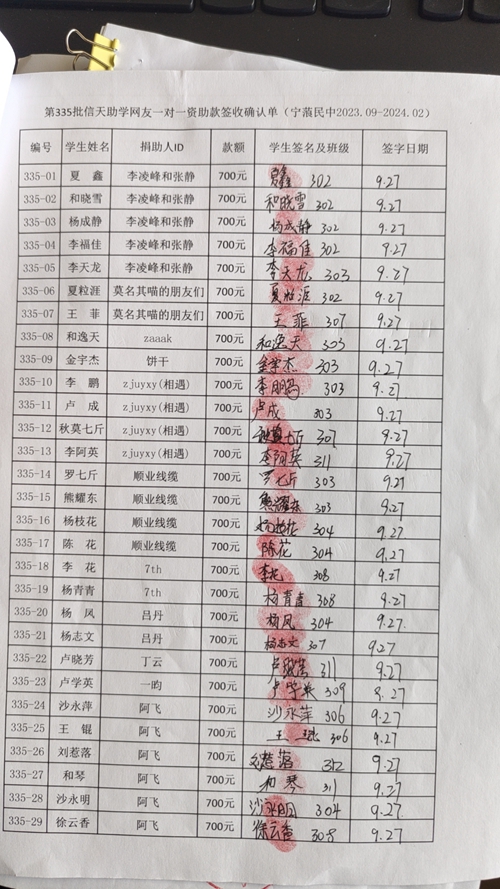 第335批信天助学网友一对一资助款签收确认单（宁蒗民中2023.09-2024.02）
编号 学生姓名 捐助人ID 款额 学生签名及班级 签字日期
335-01 夏鑫 李凌峰和张静 700元 夏鑫 302 9.27
335-02 和晓雪 李凌峰和张静 700元 和晓雪 302 9.27
335-03 杨成静 李凌峰和张静 700元 杨成静 302 9.27
335-04 李福佳 李凌峰和张静 700元 李福佳 302 9.27
335-05 李天龙 李凌峰和张静 700元 李天龙 303 9.27
335-06 夏粒涯 莫名其喵的朋友们 700元 夏粒涯 302 9.27
335-07 王菲 莫名其喵的朋友们 700元 王菲 307 9.27
335-08 和逸天 zaaak 700元 和逸天 303 9.27
335-09 金宇杰 饼干 700元 金宇杰 303 9.27
335-10 李鹏 zjuyxy(相遇) 700元 李鹏 303 9.27
335-11 卢成 zjuyxy(相遇) 700元 卢成 303 9.27
335-12 秋莫七斤 zjuyxy(相遇) 700元 秋莫七斤 307 9.27
335-13 李阿英 zjuyxy(相遇) 700元 李阿英 311 9.27
335-14 罗七斤 顺业线缆 700元 罗七斤 303 9.27
335-15 熊耀东 顺业线缆 700元 熊耀东 303 9.27
335-16 杨枝花 顺业线缆 700元 杨枝花 304 9.27
335-17 陈花 顺业线缆 700元 陈花 304 9.27
335-18 李花 7th 700元 李花 308 9.27
335-19 杨青青 7th 700元 杨青青 308 9.27
335-20 杨凤 吕丹 700元 杨凤 304 9.27
335-21 杨志文 吕丹 700元 杨志文 307 9.27
335-22 卢晓芳 丁云 700元 卢晓芳 311 9.27
335-23 卢学英 一昀 700元 卢学英 309 9.27
335-24 沙永萍 阿飞 700元 沙永萍 306 9.27
335-25 王锟 阿飞 700元 王锟 306 9.27
335-26 刘惹落 阿飞 700元 刘惹落 312 9.27
335-27 和琴 阿飞 700元 和琴 311 9.27
335-28 沙永明 阿飞 700元 沙永明 304 9.27
335-29 徐云香 阿飞 700元 徐云香 308 9.27